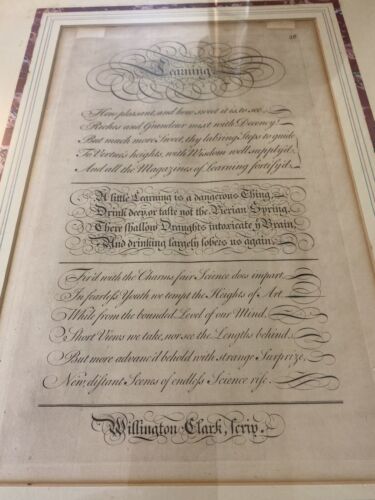 26
Learning
How pleasant, and how sweet it is to see
Riches and Grandeur mixt with Decency!
But much more Sweet, thy lab'ring Steps to guide
To Vertues heights, with Wisdom well supply'd
And all the Magazines of Learning fortify'd.
A little Learning is a dangerous Thing,
Drink deep, or taste not the Pierian Spring,
There shallow Draughts intoxicate y Brain,
And drinking largely sobers us again.
Fir'd with the Charms fair Science does impart,
In fearless Youth we tempt the Heights of Art
While from the bounded Level of our Mind,
Short Views we take, nor see the Lengths behind.
But more advanc'd behold with strange Surprize,
New, distant Scenes of endless Science rise.
Willington Clark, scrip.